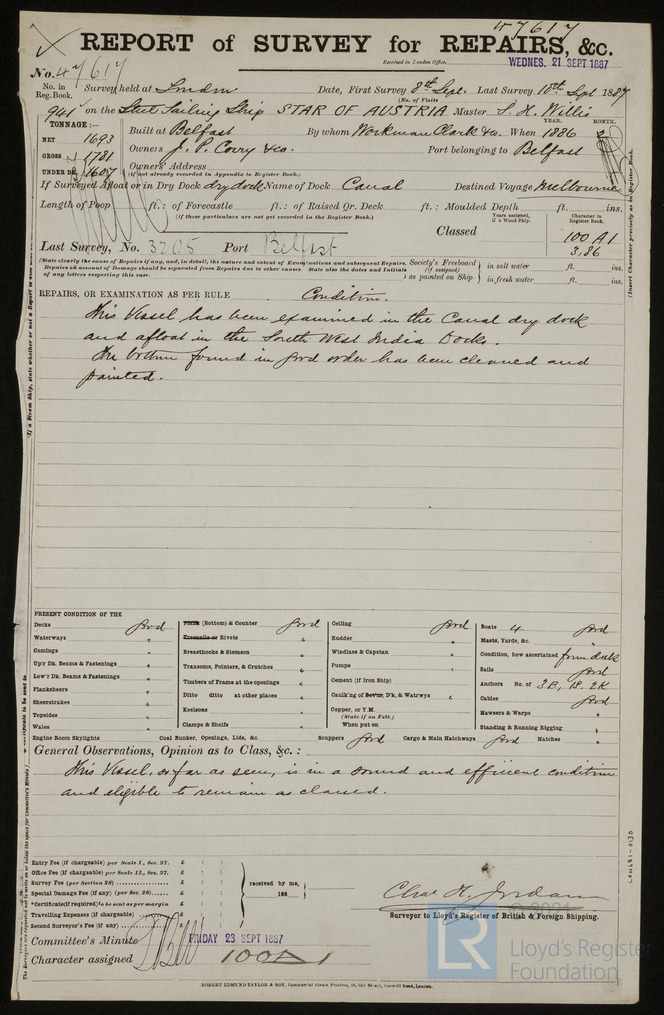 47617
REPORT of SURVEY for REPAIRS, &c.
Received in London Office, WEDNES. 21 SEPT 1887
No. 47617
No. in Reg. Book. Survey held at London Date, First Survey 8th Sept. Last Survey 18th Sept 1887
(No. of Visits
941 on the Steel Sailing Ship STAR OF AUSTRIA Master S. H. Willis
TONNAGE :— YEAR. MONTH.
NET 1693 Built at Belfast By whom Workman Clark & Co. When 1886
GROSS 1781 Owners J. P. Corry & Co. Port belonging to Belfast
UNDER DK. 1607 Owners' Address
(if not already recorded in Appendix to Register Book.)
If Surveyed Afloat or in Dry Dock dry dock Name of Dock Canal Destined Voyage Melbourne
Length of Poop ft.: of Forecastle ft.: of Raised Qr. Deck ft.: Moulded Depth ft. ins.
(if these particulars are not yet recorded in the Register Book.)
Years assigned, if a Wood Ship. Character in Register Book.
Classed 100 A1
3,86
Last Survey, No. 3205 Port Belfast
(State clearly the cause of Repairs if any, and, in detail, the nature and extent of Examinations and subsequent Repairs.
Repairs on account of Damage should be separated from Repairs due to other causes. State also the dates and Initials
of any letters respecting this case.
Society's Freeboard (if assigned) as painted on Ship
in salt water ft. ins.
in fresh water ft. ins.
(Insert Character precisely as in Register Book.
REPAIRS, OR EXAMINATION AS PER RULE Condition.
This Vessel has been examined in the Canal dry dock
and afloat in the South West India Docks.
The bottom found in good order has been cleaned and
painted.
PRESENT CONDITION OF THE
Decks good
Waterways "
Comings "
Up'r Dk. Beams & Fastenings "
Low'r Dk. Beams & Fastenings "
Planksheers "
Sheerstrakes "
Topsides "
Wales "
Plank (Bottom) & Counter good
Treenails or Rivets "
Breasthooks & Stemson "
Transoms, Pointers, & Crutches "
Timbers of Frame at the openings "
Ditto ditto at other places "
Keelsons "
Clamps & Shelfs "
Ceiling good
Rudder "
Windlass & Capstan "
Pumps "
Cement (if Iron Ship) "
Caulk'g of Bot'm, D'k, & Watrwys "
Copper, or Y.M.
(State if on Felt.)
When put on
Boats 4 good
Masts, Yards, &c. "
Condition, how ascertained from deck
Sails good
Anchors No. of 3B, 1S, 2K
Cables good
Hawsers & Warps "
Standing & Running Rigging "
Engine Room Skylights Coal Bunker, Openings, Lids, &c. Scuppers good Cargo & Main Hatchways good Hatches "
General Observations, Opinion as to Class, &c. :
This Vessel, so far as seen, is in a sound and efficient condition
and eligible to remain as classed.
Entry Fee (if chargeable) per Scale I., Sec. 27. £ : :
Office Fee (if chargeable) per Scale II., Sec. 27. £ : :
Survey Fee (per Section 28) £ : :
Special Damage Fee (if any) (per Sec. 28) £ : :
*Certificate (if required) to be sent as per margin £ : :
Travelling Expenses (if chargeable) £ : :
Second Surveyor's Fee (if any) £ : :
received by me,
188
Chas H. Jordan
Surveyor to Lloyd's Register of British & Foreign Shipping.
Committee's Minute FRIDAY 23 SEPT 1887
Character assigned 100A1
ROBERT EDMUND TAYLOR & SON, Commercial Steam Printers, 19, Old Street, Goswell Road, London.
LR
© 2021
Lloyd's Register
Foundation